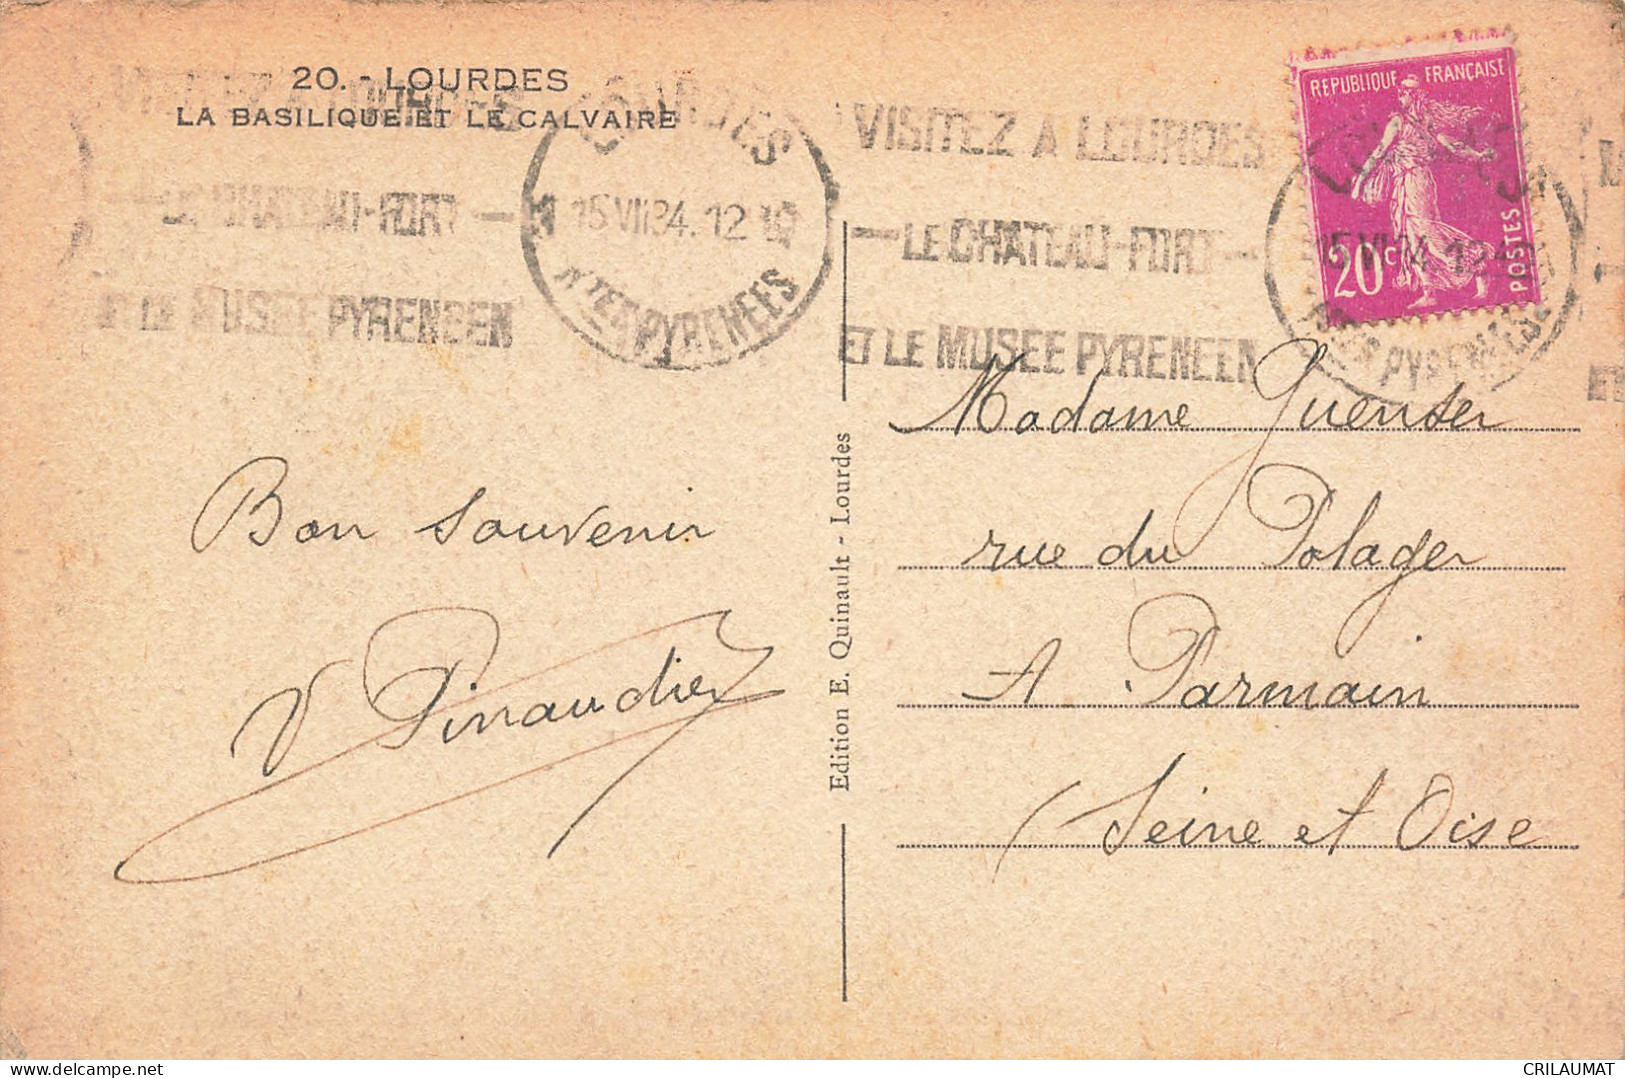 20. - LOURDES
LA BASILIQUE ET LE CALVAIRE
LOURDES
15 VII 34. 12
Htes PYRENEES
LE CHATEAU-FORT
ET LE MUSEE PYRENEEN
VISITEZ A LOURDES
- LE CHATEAU-FORT -
ET LE MUSEE PYRENEEN
REPUBLIQUE FRANÇAISE
20c
POSTES
Bon souvenir
V Pinaudier
Edition E. Quinault - Lourdes
Madame Guenser
rue du Potager
A Parmain
(Seine et Oise
delcampe.net
CRILAUMAT